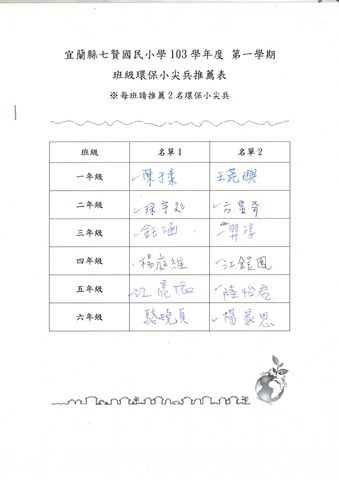 宜蘭縣七賢國民小學 103 學年度 第一學期
班級環保小尖兵推薦表
※每班請推薦 2 名環保小尖兵
班級 名單 1 名單 2
一年級 陳于柔
二年級
三年級 鈺涵
四年級 楊庭維 江鎧鳳
五年級 陸怡君
六年級 駱曉貞 楊家恩